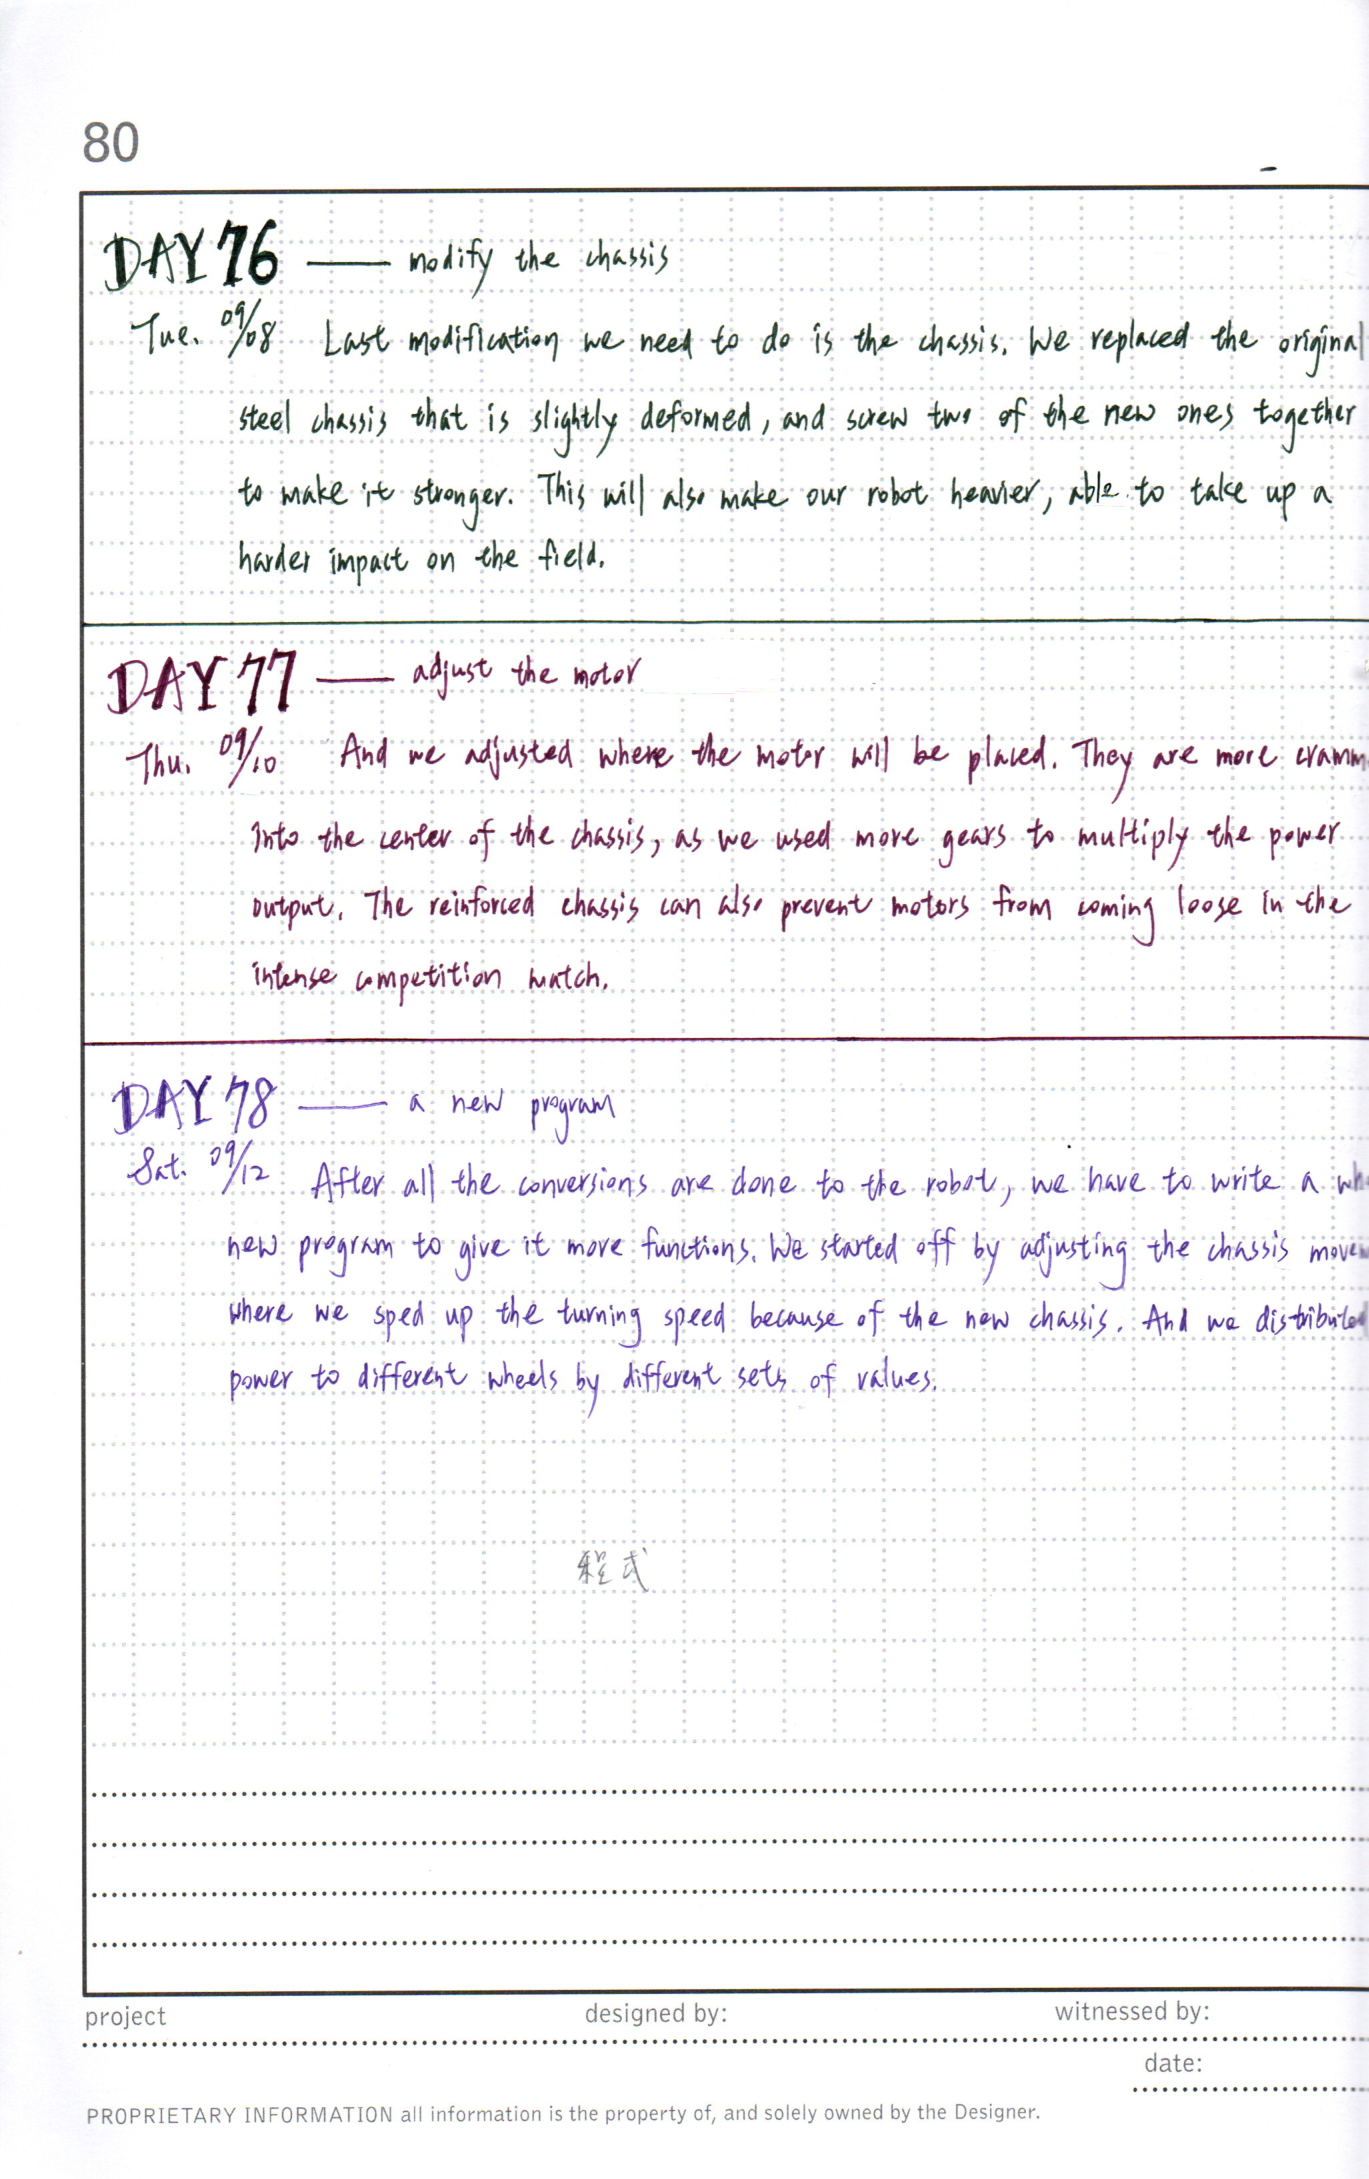 80
DAY 76 — modify the chassis
Tue. 09/08 Last modification we need to do is the chassis. We replaced the original
steel chassis that is slightly deformed, and screw two of the new ones together
to make it stronger. This will also make our robot heavier, able to take up a
harder impact on the field.
DAY 77 — adjust the motor
Thu. 09/10 And we adjusted where the motor will be placed. They are more cramm
into the center of the chassis, as we used more gears to multiply the power
output. The reinforced chassis can also prevent motors from coming loose in the
intense competition match.
DAY 78 — a new program
Sat. 09/12 After all the conversions are done to the robot, we have to write a wh
new program to give it more functions. We started off by adjusting the chassis movem
where we sped up the turning speed because of the new chassis. And we distributed
power to different wheels by different sets of values.
程式
project designed by: witnessed by:
date:
PROPRIETARY INFORMATION all information is the property of, and solely owned by the Designer.